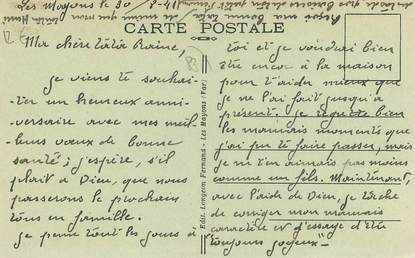 Les Mayons le 30
CARTE POSTALE
Ma chère tata Reine,
je viens te souhai-
-ter un heureux anni-
versaire avec mes meil-
-leurs vœux de bonne
santé; j'espère, s'il
plaît à Dieu, que nous
passerons le prochain
tous en famille.
je pense tout les jours à
Edit. Longeon Fernand - Les Mayons (Var)
toi et je voudrai bien
être encor à la maison
pour t'aider mieux que
je ne l'ai fait jusqu'à
présent. je regrette bien
les mauvais moments que
j'ai pu te faire passer, mais
je ne t'en aimais pas moins
comme un fils. Maintenant,
avec l'aide de Dieu, je tâche
de corriger mon mauvais
caractère et d'essayer d'être
toujours joyeux -